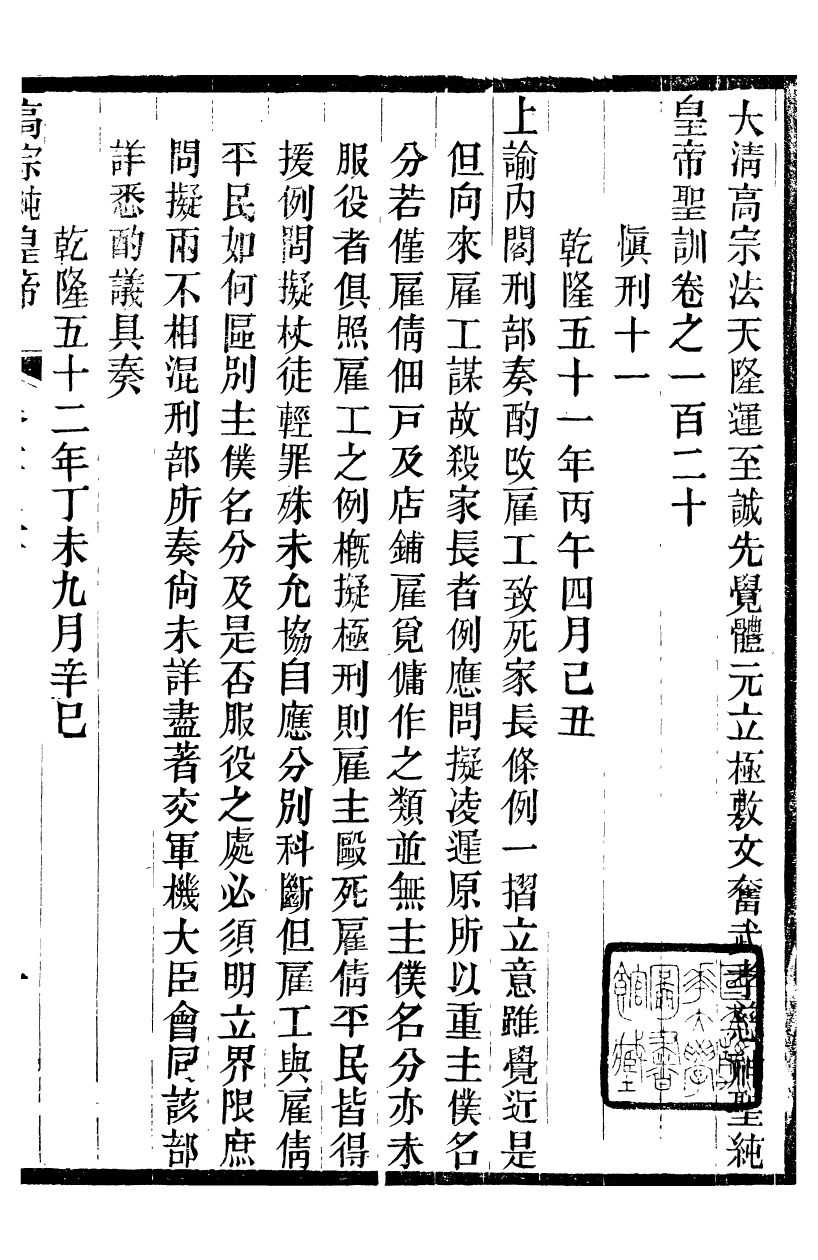 大清高宗法天隆運至誠先覺體元立極敷文奮武孝慈神聖純
皇帝聖訓卷之一百二十
愼刑十一
乾隆五十一年丙午四月己丑
上諭內閣刑部奏酌改雇工致死家長條例一摺立意雖覺近是
但向來雇工謀故殺家長者例應問擬凌遲原所以重主僕名
分若僅雇倩佃戸及店鋪雇覓傭作之類並無主僕名分亦未
服役者俱照雇工之例槪擬極刑則雇主毆死雇倩平民皆得
援例問擬杖徒輕罪殊未允協自應分別科斷但雇工與雇倩
平民如何區別主僕名分及是否服役之處必須明立界限庶
問擬兩不相混刑部所奏尙未詳盡著交軍機大臣會同該部
詳悉酌議具奏
乾隆五十二年丁未九月辛巳
高宗純皇帝